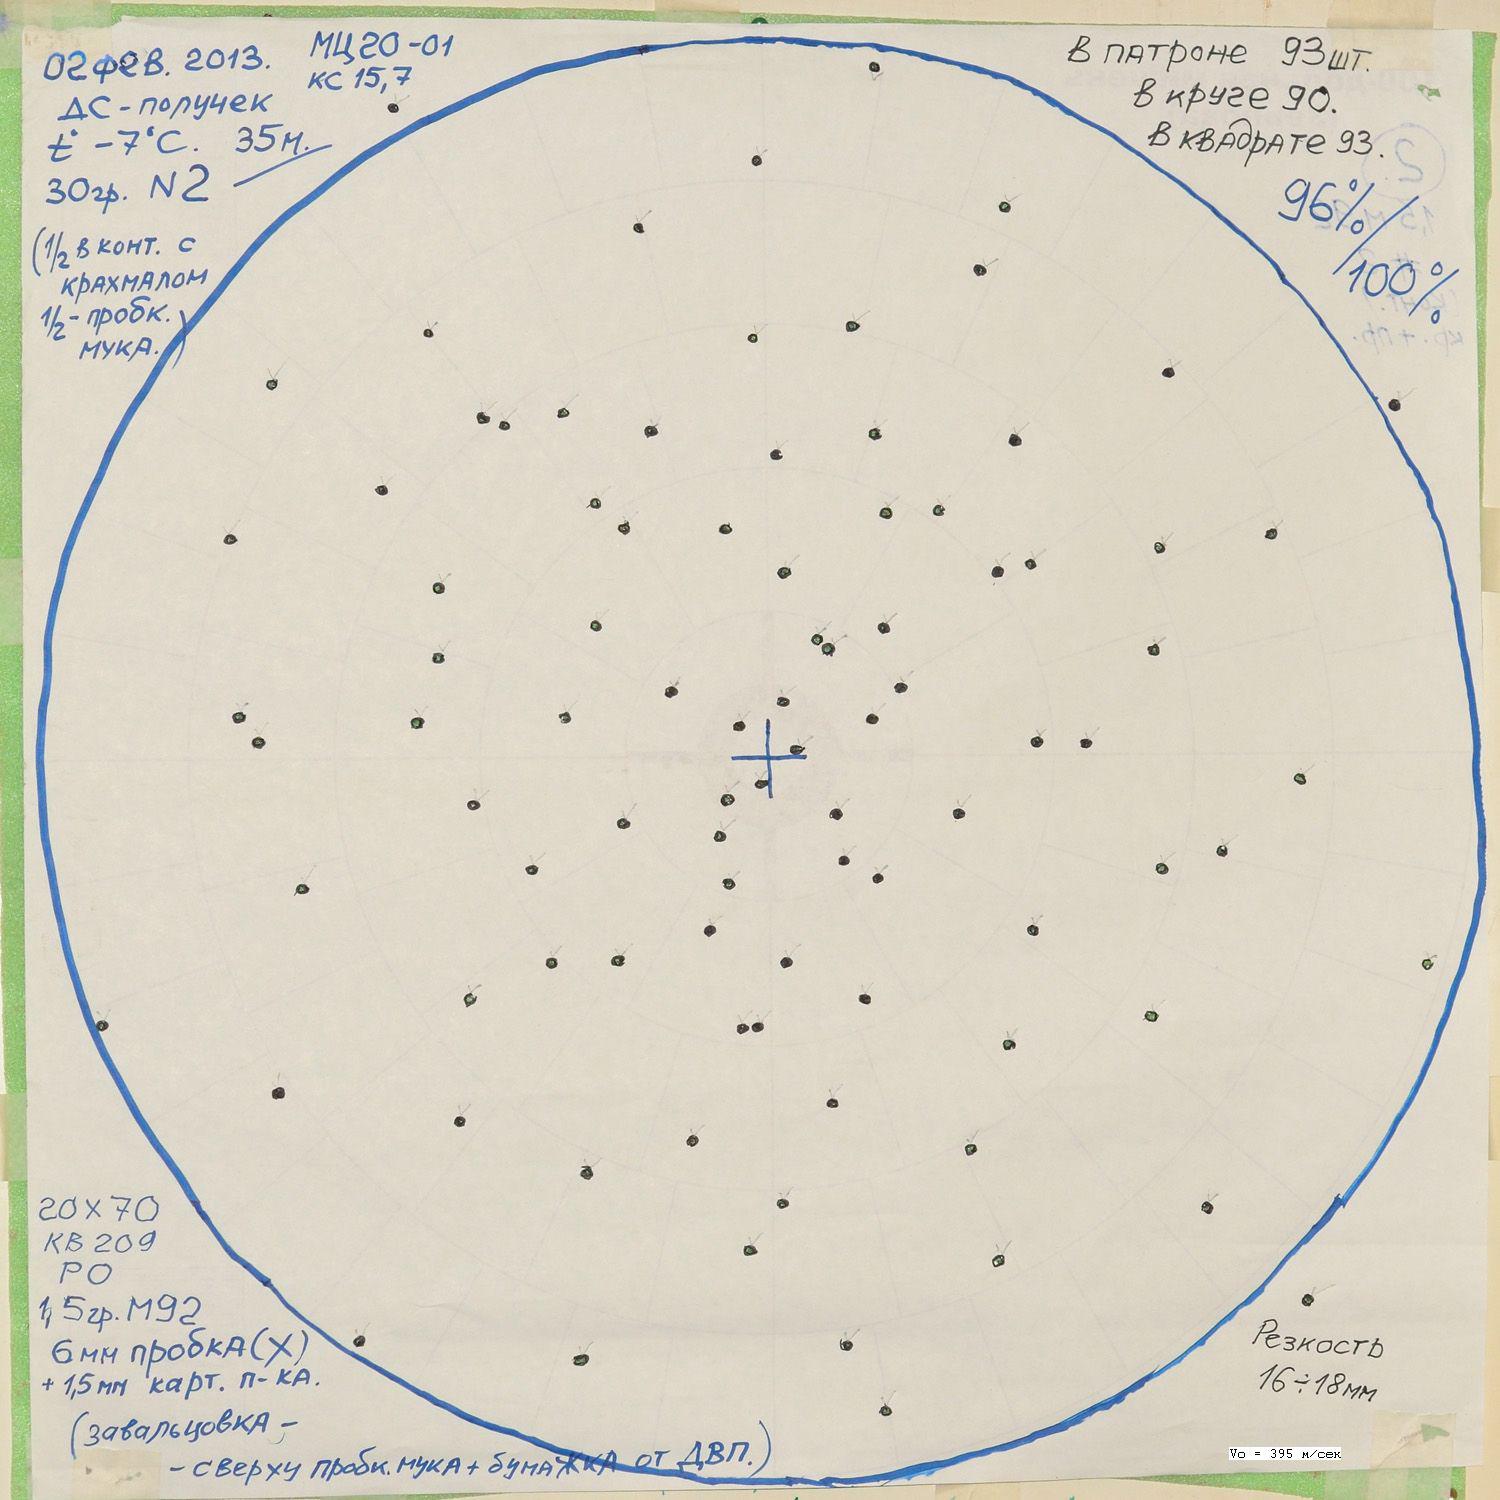 02 фев. 2013.
МЦ20-01
кс 15,7
ДС-получек
t° -7°С. 35м.
30гр. N2
(1/2 в конт. с
крахмалом
1/2 - пробк.
мука.)
В патроне 93шт.
в круге 90.
в квадрате 93.
96%/100%
20х70
КВ 209
РО
1,5гр. М92
6мм пробка(х)
+ 1,5мм карт. п-ка.
(завальцовка -
- сверху пробк.мука + бумажка от ДВП.)
Резкость
16÷18мм
Vo = 395 м/сек